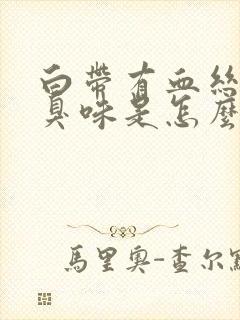 白帶有血絲
臭味是怎麼
馬里奧-查尔